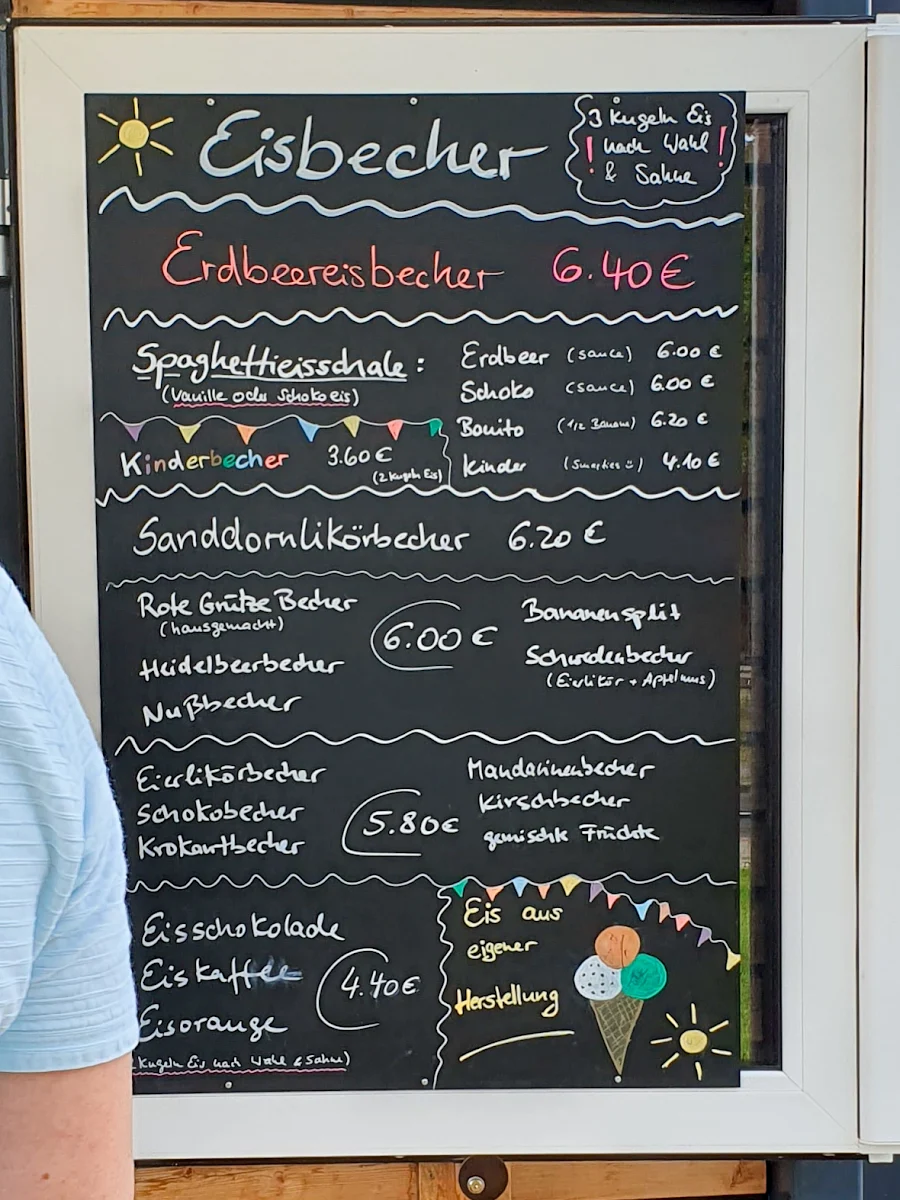 Eisbecher
3 Kugeln Eis
! nach Wahl !
& Sahne
Erdbeereisbecher 6.40 €
Spaghettieisschale :
(Vanille oder Schokoeis)
Erdbeer (sauce) 6.00 €
Schoko (sauce) 6.00 €
Bonito (1/2 Banane) 6.20 €
Kinder (Smarties ü) 4.10 €
Kinderbecher 3.60 €
(2 Kugeln Eis)
Sanddornlikörbecher 6.20 €
Rote Grütze Becher
(hausgemacht)
Heidelbeerbecher
Nußbecher
6.00 €
Bananensplit
Schwedenbecher
(Eierlikör + Apfelmus)
Eierlikörbecher
Schokobecher
Krokantbecher
5.80 €
Mandarinenbecher
Kirschbecher
gemischte Früchte
Eisschokolade
Eiskaffee
Eisorange
4.40 €
Kugeln Eis nach Wahl & Sahne)
Eis aus
eigener
Herstellung